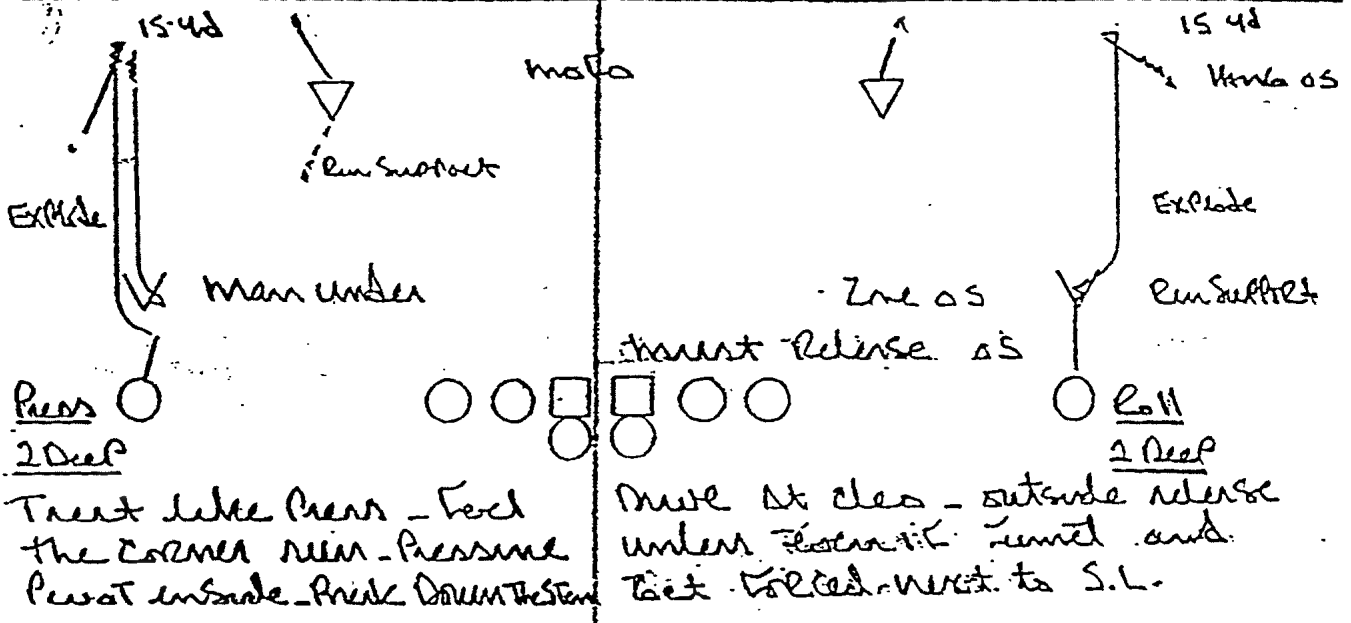 15 yd
MOFO
15 yd
Hinge os
Run Support
Explode
Explode
Man under
Zone os
Run Support
Release os
Press
Roll
2 Deep
2 Deep
Treat like Press - Feel
the corner run - Pressure
Pivot inside - Break Down The Stem
Drive at - outside release
unless and
to S.L.